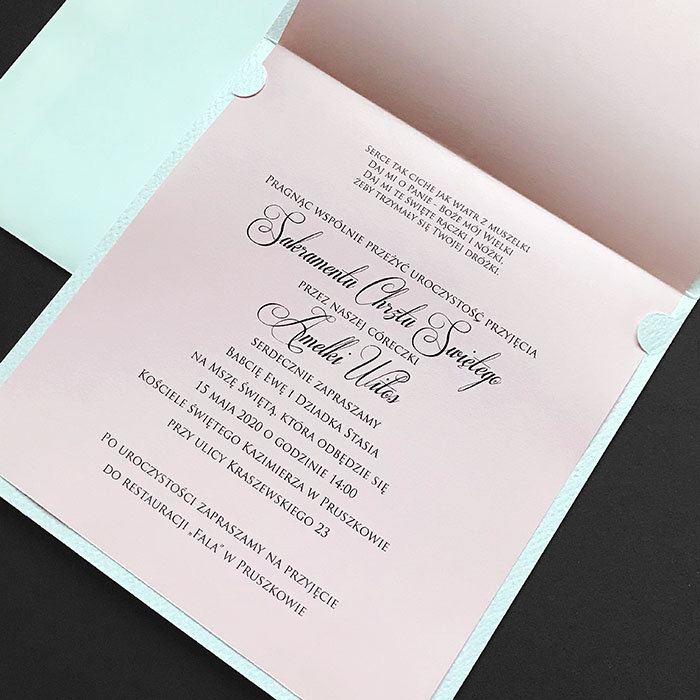 Serce tak ciche jak wiatr z muszelki
Daj mi o Panie - Boże mój wielki
Daj mi te święte rączki i nóżki,
żeby trzymały się Twojej dróżki.
Pragnąc wspólnie przeżyć uroczystość przyjęcia
Sakramentu Chrztu Świętego
przez naszej córeczki
Amelki Witos
serdecznie zapraszamy
Babcię Ewę i Dziadka Stasia
na Mszę Świętą, która odbędzie się
15 maja 2020 o godzinie 14:00
Kościele Świętego Kazimierza w Pruszkowie
przy ulicy Kraszewskiego 23
Po uroczystości zapraszamy na przyjęcie
do restauracji „Fala" w Pruszkowie